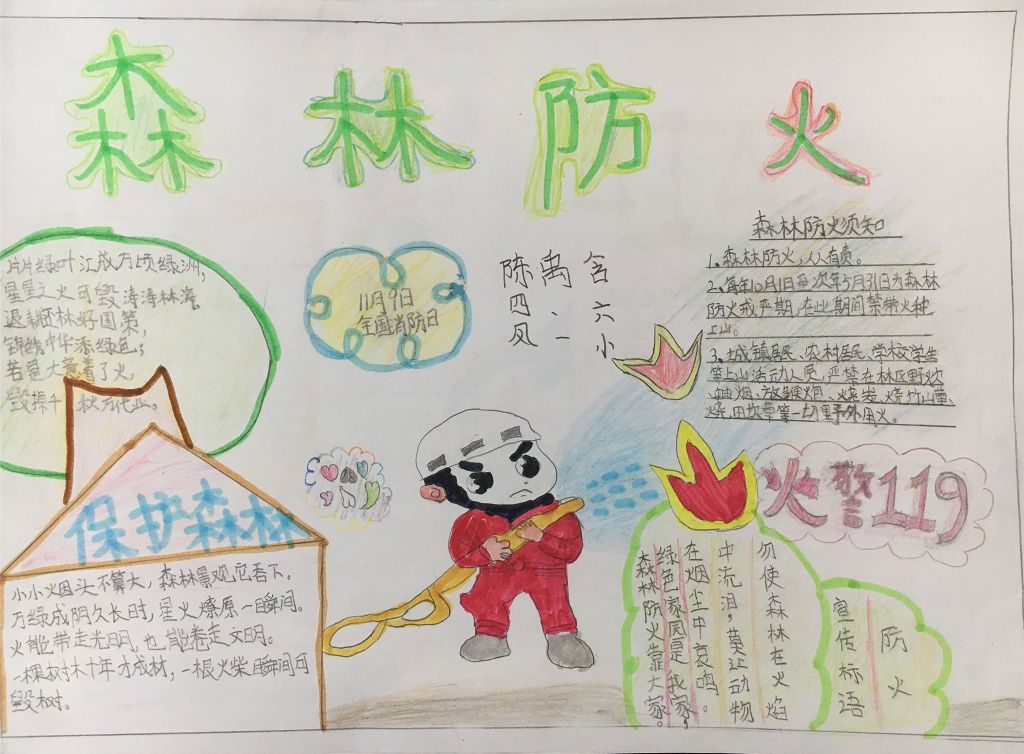 森林防火
片片绿叶汇成万顷绿洲，
星星之火可毁涛涛林海。
退耕还林好国策，
锦绣中华添绿色；
若是大意着了火，
毁掉千秋万代业。
11月9日
全国消防日
含六小
禹、一
陈四凤
森林防火须知
1、森林防火，人人有责。
2、每年10月1日至次年5月31日为森林
防火戒严期，在此期间禁带火种
上山。
3、城镇居民、农村居民、学校学生
等上山活动人员，严禁在林区野炊、
抽烟、放鞭炮、烧炭、烧竹山薑、
烧田坎等一切野外用火。
火警119
保护森林
小小烟头不算大，森林景观它吞下。
万绿成阴久长时，星火燎原一瞬间。
火能带走光明，也能卷走文明。
一棵树木十年才成材，一根火柴瞬间可
毁树。
防火
宣传标语
勿使森林在火焰
中流泪，莫让动物
在烟尘中哀鸣。
绿色家园是我家，
森林防火靠大家。